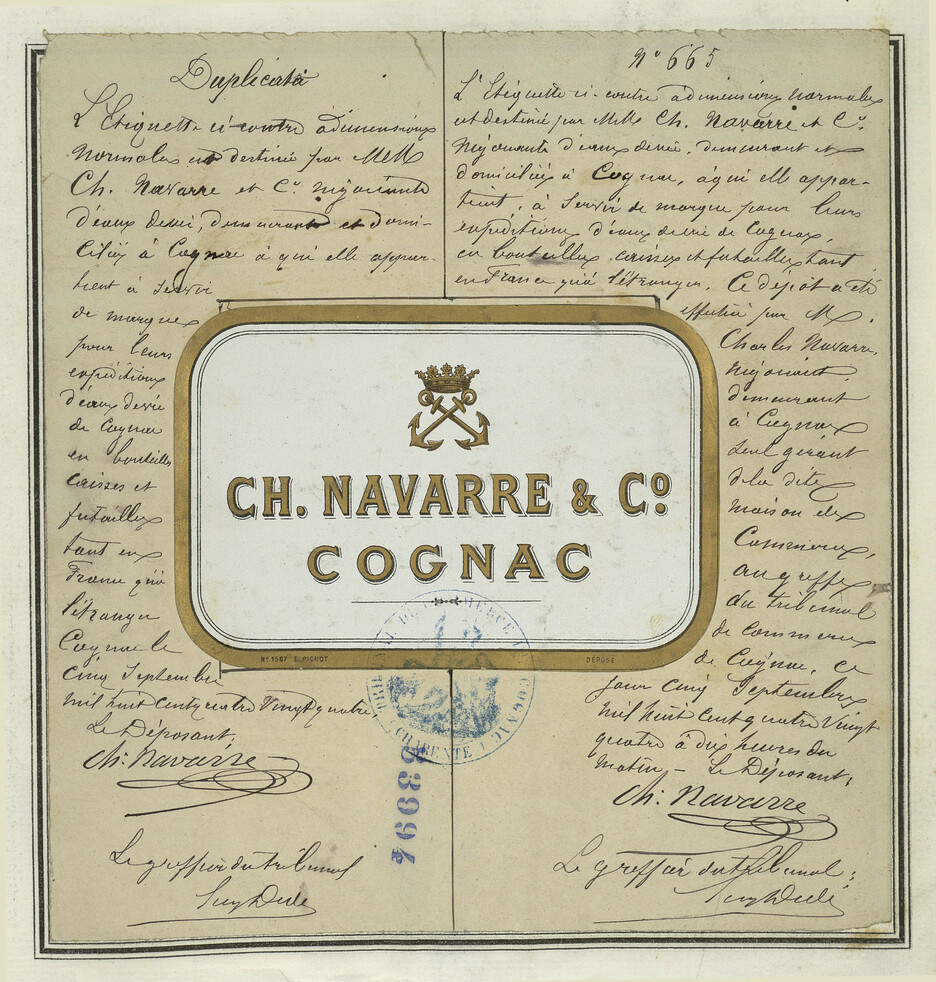 Duplicata
L'Etiquette ci-contre à dimensions
normales est destinée par MM
Ch. Navarre et Cie négociants
d'eaux devie, demeurant et domi-
ciliés à Cognac à qui elle appar-
tient à servir
de marques
pour leurs
expéditions
d'eaux devie
de Cognac
en bouteilles
caisses et
futailles
tant en
France qu'à
l'étranger
Cognac le
cinq Septembre
mil huit cent quatre vingt quatre
Le Déposant;
Ch: Navarre
Le greffier du tribunal
N° 665
L'Etiquette ci-contre à dimensions normales
est destinée par MM Ch. Navarre et Cie
Négociants d'eaux devie, demeurant et
domiciliés à Cognac, à qui elle appar-
tient, à servir de marque pour leurs
expéditions d'eaux de vie de Cognac,
en bouteilles, caisses et futailles tant
en France qu'à l'étranger. Ce dépôt a été
effectué par M.
Charles Navarre,
négociant,
demeurant
à Cognac
seul gérant
de la dite
maison de
Commerce,
au greffe
du tribunal
de commerce
de Cognac, ce
jour cinq Septembre
mil huit cent quatre vingt
quatre à dix heures du
matin - Le Déposant;
Ch: Navarre
Le greffier du tribunal;
CH. NAVARRE & Cº
COGNAC
Nº 1587 E. PICHOT
DÉPOSÉ
TRIBUNAL DE COMMERCE COGNAC
CHARENTE
33994